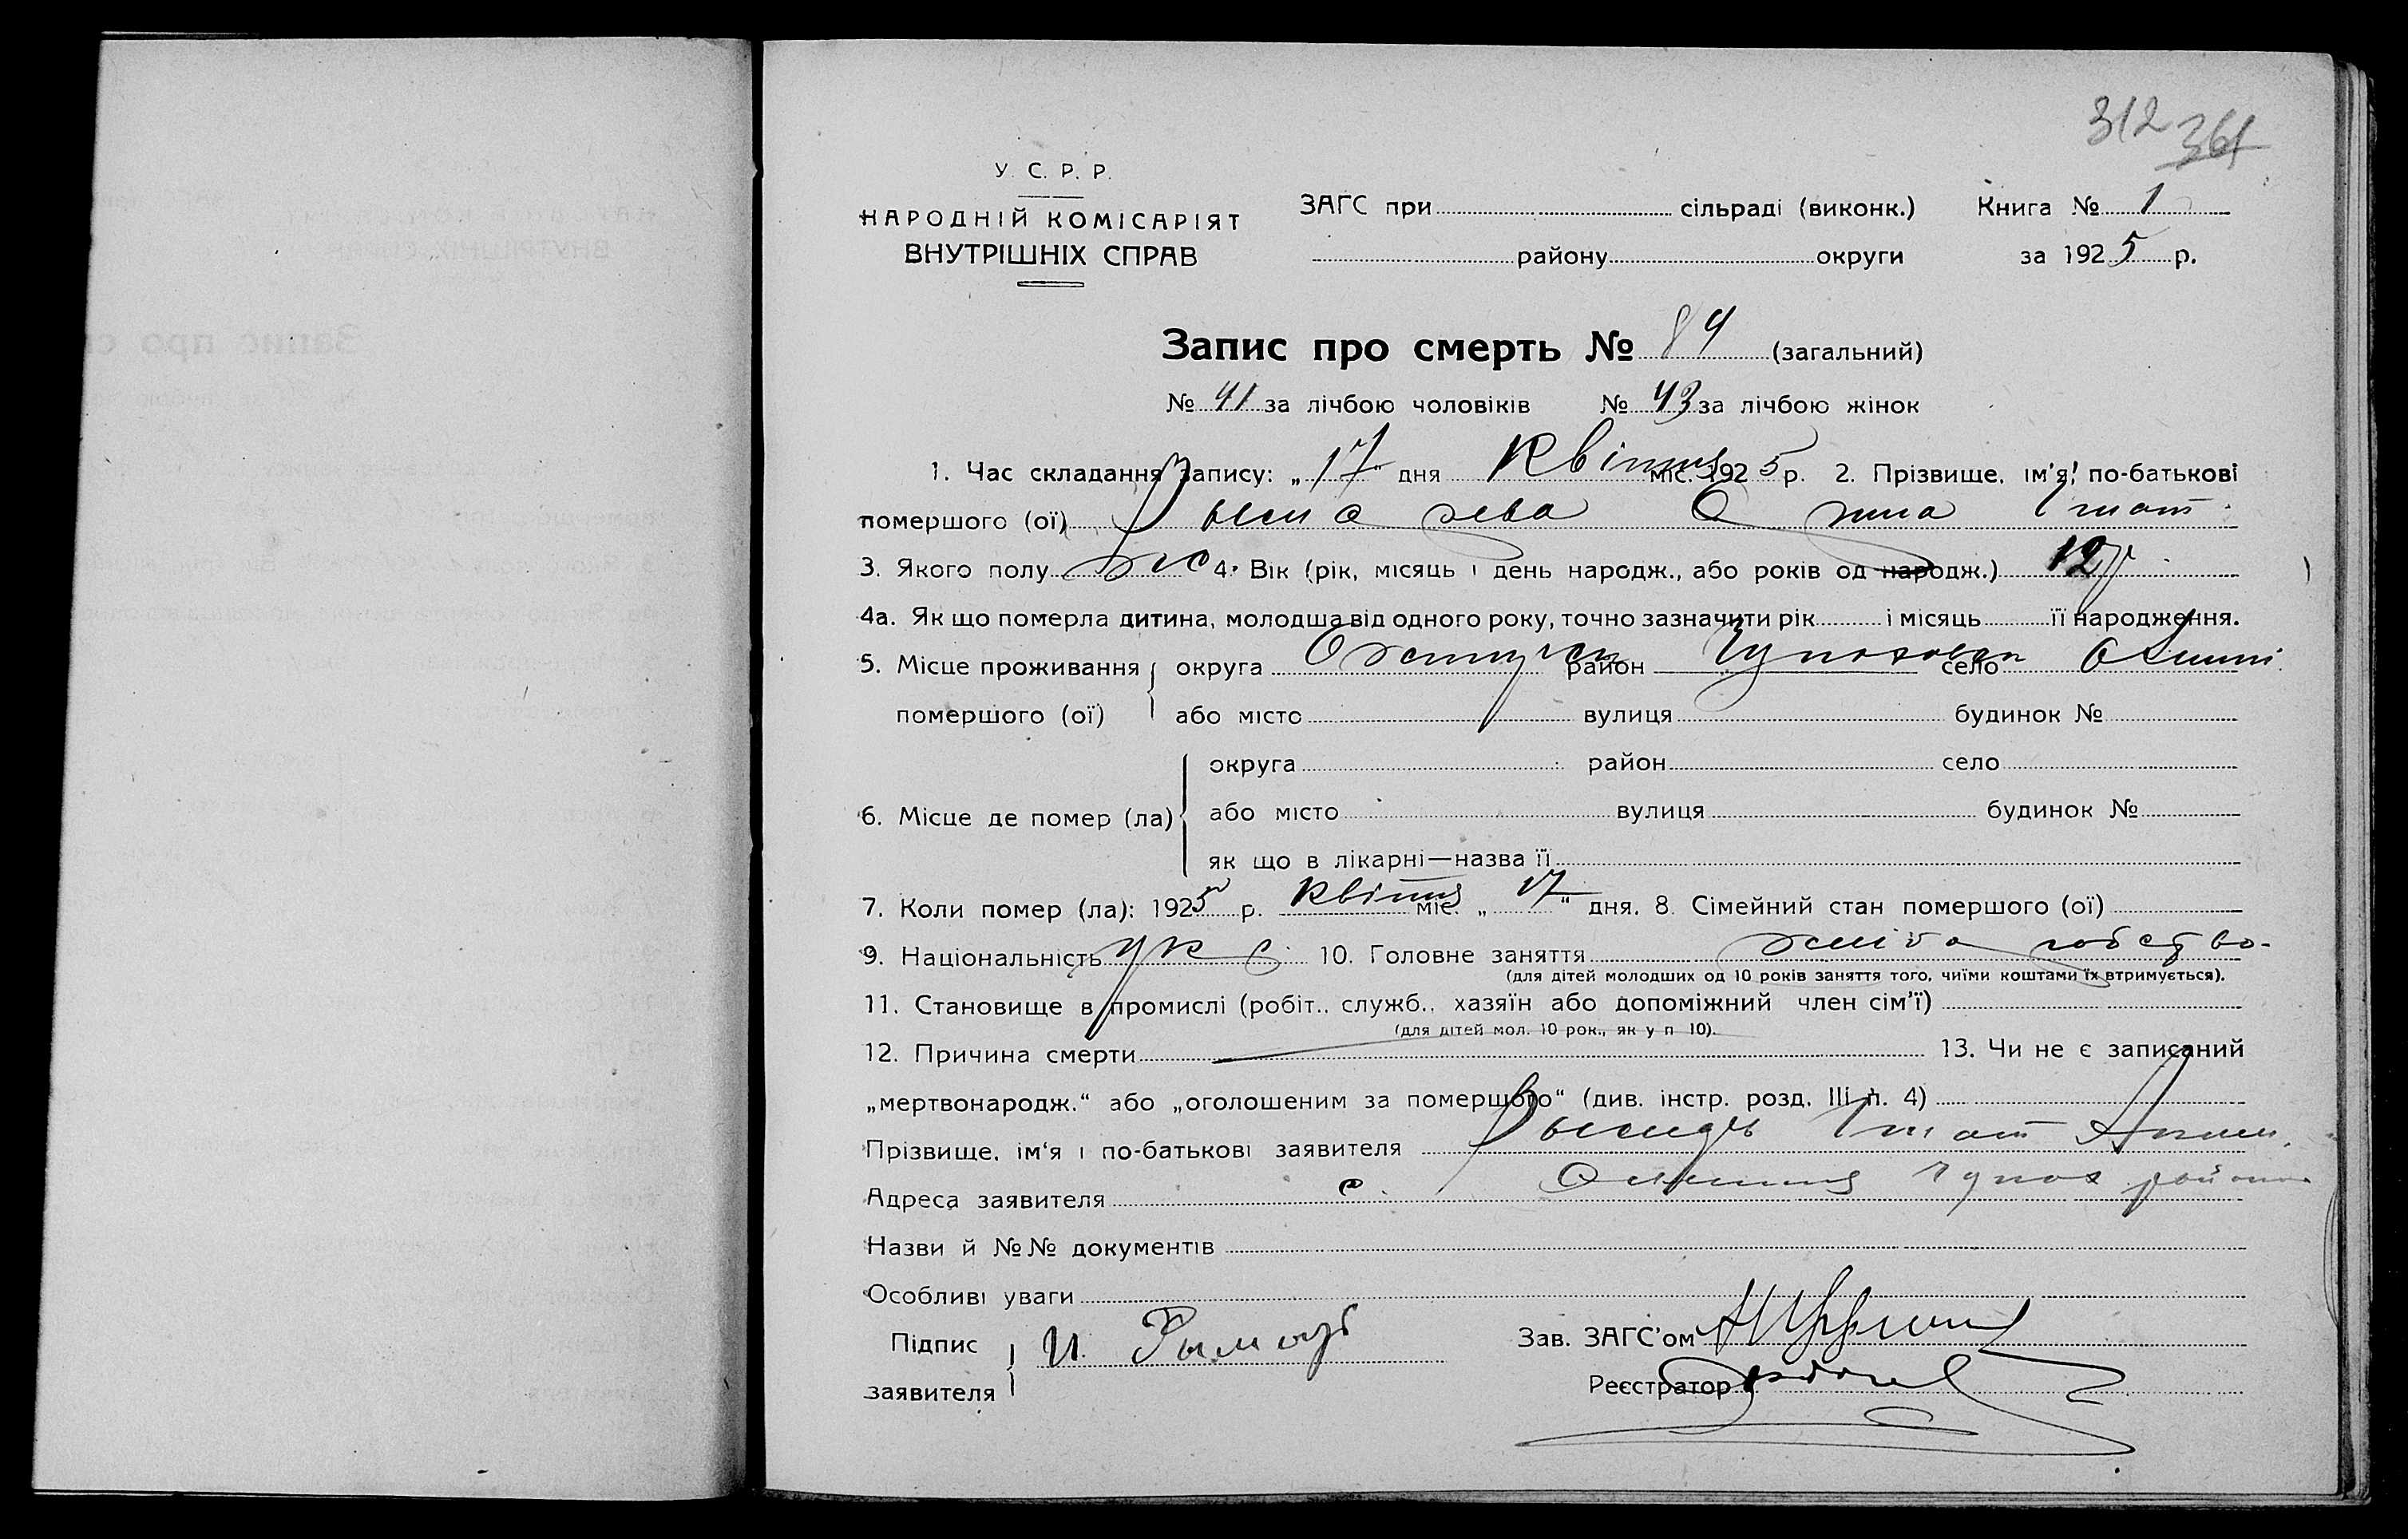 312 361
У. С. Р. Р.
НАРОДНІЙ КОМІСАРІЯТ
ВНУТРІШНІХ СПРАВ
ЗАГС при сільраді (виконк.) Книга № 1
району округи за 1925 р.
Запис про смерть № 84 (загальний)
№ 41 за лічбою чоловіків № 43 за лічбою жінок
1. Час складання запису: „17“ дня Квітня міс. 1925 р. 2. Прізвище, ім'я, по-батькові
помершого (ої) Игнат.
3. Якого полу ж 4. Вік (рік, місяць і день народж., або років од народж.) 12 р.
4а. Як що померла дитина, молодша від одного року, точно зазначити рік і місяць її народження.
5. Місце проживання округа район село
помершого (ої) або місто вулиця будинок №
округа район село
6. Місце де помер (ла) або місто вулиця будинок №
як що в лікарні—назва її
7. Коли помер (ла): 1925 р. Квітня міс. „17“ дня. 8. Сімейний стан помершого (ої)
9. Національність укр 10. Головне заняття
(для дітей молодших од 10 років заняття того, чиїми коштами їх втримується).
11. Становище в промислі (робіт., служб., хазяїн або допоміжний член сім'ї)
(для дітей мол. 10 рок., як у п 10).
12. Причина смерти — 13. Чи не є записаний
„мертвонародж.“ або „оголошеним за помершого“ (див. інстр. розд. III п. 4)
Прізвище, ім'я і по-батькові заявителя
Адреса заявителя с. район
Назви й №№ документів
Особливі уваги
Підпис И. Зав. ЗАГС'ом
заявителя Реєстратор